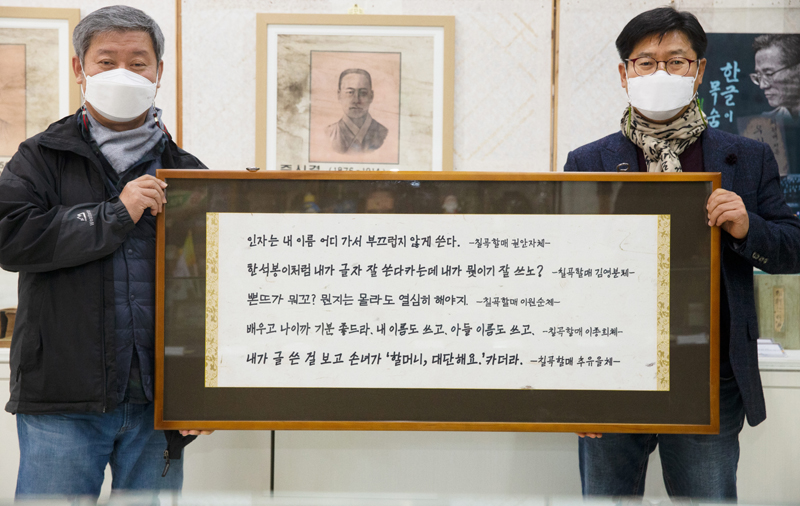 주시경 (1876-1914)
한글이
목숨
인자는 내 이름 어디 가서 부끄럽지 않게 쓴다. -칠곡할매 권안자체-
한석봉이처럼 내가 글자 잘 쓴다카는데 내가 뭔이기 잘 쓰노? -칠곡할매 김영분체-
뽄뜨가 뭐꼬? 뭔지는 몰라도 열심히 해야지. -칠곡할매 이원순체-
배우고 나이까 기분 좋드라. 내 이름도 쓰고, 아들 이름도 쓰고. -칠곡할매 이종희체-
내가 글 쓴 걸 보고 손녀가 '할머니, 대단해요.'카더라. -칠곡할매 추유을체-